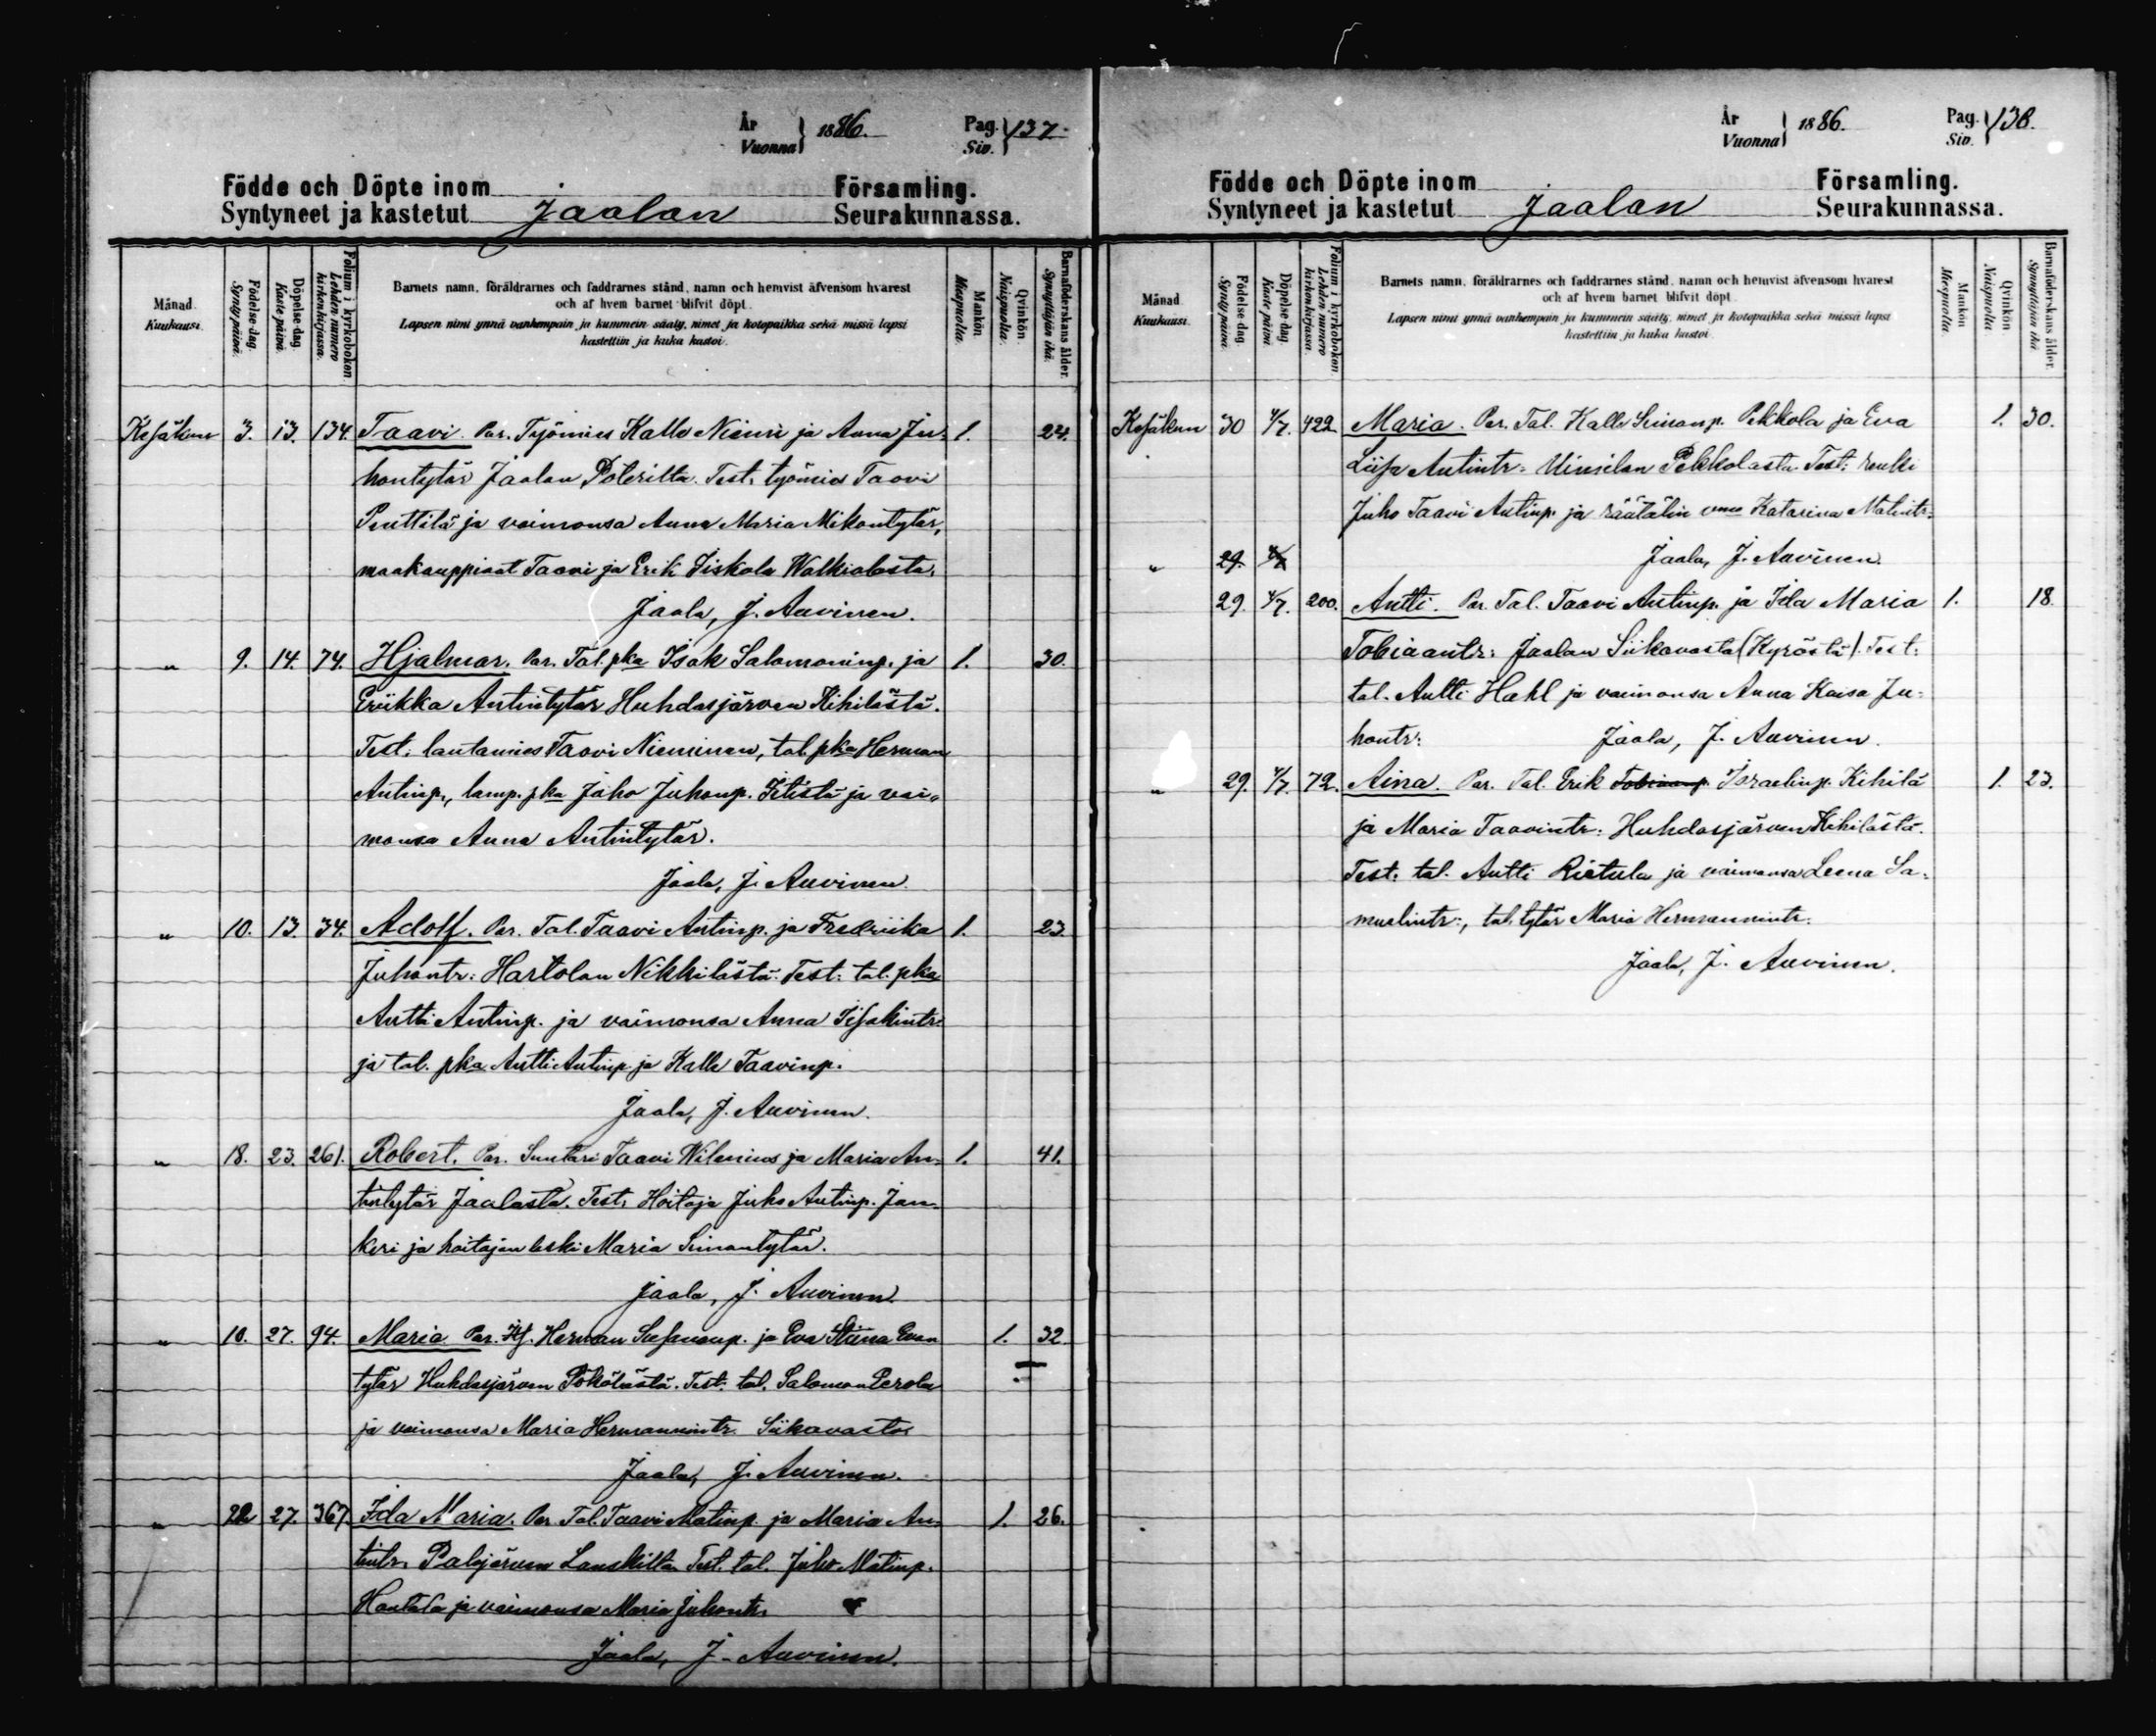 År Vuonna } 1886. Pag. Siv. } 137.
Födde och Döpte inom Församling.
Syntyneet ja kastetut Jaalan Seurakunnassa.
Månad. Kuukausi.
Födelse-dag. Synty päivä.
Döpelse-dag. Kaste päivä.
Folium i kyrkoboken. Lehden numero kirkonkirjassa.
Barnets namn, föräldrarnes och faddrarnes stånd, namn och hemvist äfvensom hvarest
och af hvem barnet blifvit döpt.
Lapsen nimi ynnä vanhempain ja kummein sääty, nimet ja kotopaikka sekä missä lapsi
kastettiin ja kuka kastoi.
Mankön. Miespuolta.
Qvinkön. Naispuolta.
Barnaföderskans ålder. Synnyttäjän ikä.
Kesäkuu 3. 13. 134. Taavi. Par. Työmies Kalle Niemi ja Anna Ju- 1. 24.
hontytär Jaalan Polerilta. Test: työmies Taavi
Penttilä ja vaimonsa Anna Maria Mikontytär,
maakauppiaat Taavi ja Erik Iiskola Walkialasta.
Jaala, J. Auvinen.
" 9. 14. 74. Hjalmar. Par. Tal. pka Isak Salomoninp. ja 1. 30.
Eriikka Antintytär Huhdasjärven Kihilästä.
Test: lautamies Taavi Nieminen, tal. pka Herman
Antinp., lamp. pka Juho Juhonp. Iitistä ja vai-
monsa Anna Antintytär.
Jaala, J. Auvinen.
" 10. 13. 34. Adolf. Par. Tal. Taavi Antinp. ja Fredriika 1. 23
Juhontr: Hartolan Nikkilästä. Test: tal. pka
Antti Antinp. ja vaimonsa Anna Iisakintr.
ja tal. pka Antti Antinp. ja Kalle Taavinp.
Jaala, J. Auvinen.
" 18. 23. 261. Robert. Par. Suntari Taavi Wilenius ja Maria An- 1. 41.
tintytär Jaalasta. Test: Hoitaja Juho Antinp. Jan-
keri ja hoitajan leski Maria Simontytär.
Jaala, J. Auvinen.
" 10. 27. 94. Maria Par. Herman ja Eva Stiina Evan 1. 32
tytär Huhdasjärven Test: tal. Salomon Perola
ja vaimonsa Maria Hermannintr. Siikavasta
Jaala, J. Auvinen.
" 22 27. 367 Ida Maria. Par. Tal. Taavi Matinp. ja Maria An- 1. 26.
tintr. Palojärven Test. tal. Juho Matinp.
Hantala ja vaimonsa Maria Juhontr.
Jaala, J. Auvinen.
År Vuonna } 1886. Pag. Siv. } 138.
Födde och Döpte inom Församling.
Syntyneet ja kastetut Jaalan Seurakunnassa.
Månad. Kuukausi.
Födelse-dag. Synty päivä.
Döpelse-dag. Kaste päivä.
Folium i kyrkoboken. Lehden numero kirkonkirjassa.
Barnets namn, föräldrarnes och faddrarnes stånd, namn och hemvist äfvensom hvarest
och af hvem barnet blifvit döpt.
Lapsen nimi ynnä vanhempain ja kummein sääty, nimet ja kotopaikka sekä missä lapsi
kastettiin ja kuka kastoi.
Mankön. Miespuolta.
Qvinkön. Naispuolta.
Barnaföderskans ålder. Synnyttäjän ikä.
Kesäkuu 30 4/7. 422. Maria. Par. Tal. Kalle Simonp. Pekkola ja Eva 1. 30.
Liisa Antintr. Uimilan Pekkolasta. Test: renki
Juho Taavi Antinp. ja räätälin vmo Katarina Matintr:
Jaala, J. Auvinen.
" 29. 4/7
29. 4/7. 200. Antti. Par. Tal. Taavi Antinp. ja Ida Maria 1. 18.
Tobiaantr: Jaalan Siikavasta (Kyröstä). Test:
tal. Antti Hahl ja vaimonsa Anna Kaisa Ju-
hontr: Jaala, J. Auvinen.
" 29. 4/7. 72. Aina. Par. Tal. Erik Tobiaanp. Israelinp. Kihilä 1. 23.
ja Maria Taavintr: Huhdasjärven Kihilästä.
Test: tal. Antti Rietula ja vaimonsa Leena Sa-
muelintr:, tal. tytär Maria Hermannintr.
Jaala, J. Auvinen.